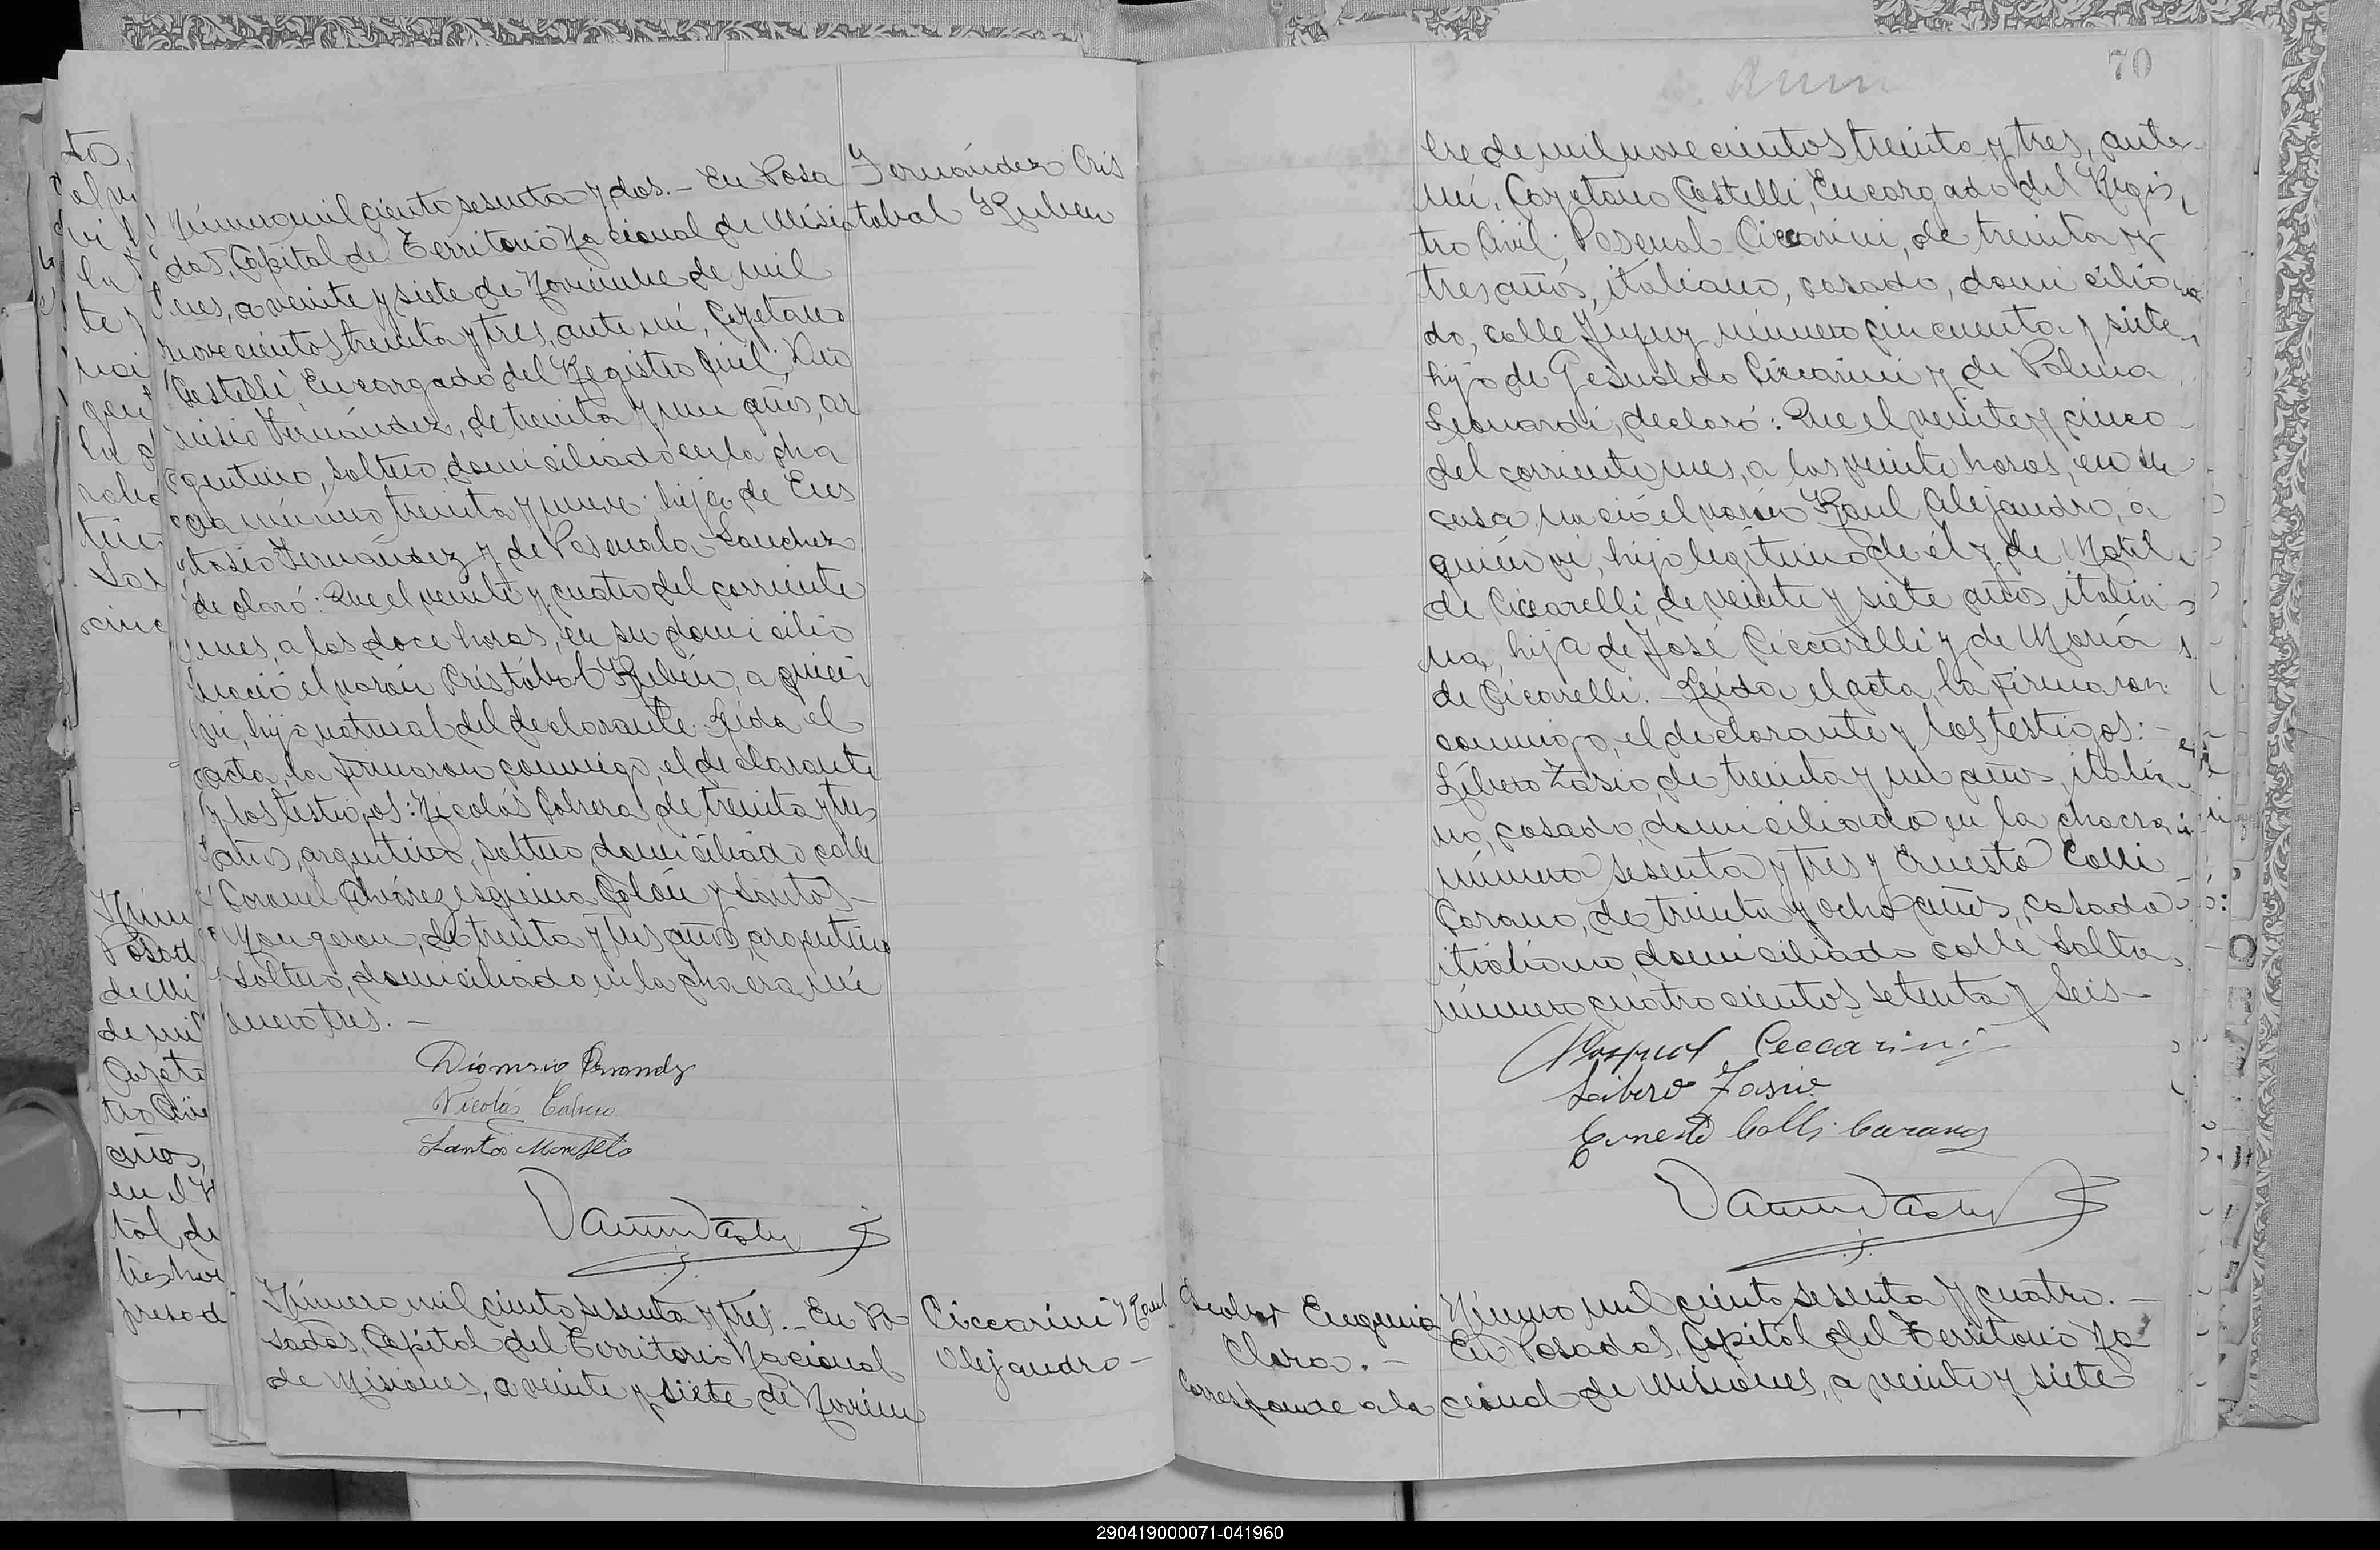 Número mil ciento sesenta y dos.- En Posa
das, Capital de Territorio Nacional de Misio
nes, a veinte y siete de Noviembre de mil
novecientos treinta y tres, ante mí, Cayetano
Castelli, Encargado del Registro Civil; Dio
nisio Fernández, de treinta y un años, ar
gentino, soltero, domiciliado en la cha
cra número treinta y nueve, hijo de Eus
tasio Fernández y de Pascuala Sanchez
declaró: Que el veinte y cuatro del corriente
mes, a las doce horas, en su domicilio
nació el varón Cristóbal Rubén, a quien
vi, hijo natural del declarante. Leída el
acta, la firmaron conmigo, el declarante
y los testigos: Nicolás Cabrera, de treinta y tres
años, argentino, soltero, domiciliado calle
Coronel Alvárez esquina Colón y Santos
de treinta y tres años, argentino
soltero, domiciliado en la chacra nú
mero tres.-
Fernández Cris
tobal Ruben
Dionisio
Nicolás Cabrera
Santos
Número mil ciento sesenta y tres.- En Po-
sadas, Capital del Territorio Nacional
de Misiones, a veinte y siete de Noviem
Ciccarini Raul
Alejandro-
70
bre de mil novecientos treinta y tres, ante
mí, Cayetano Castelli, Encargado del Regis
tro Civil; Pascual Ciccarini, de treinta y
tres años, italiano, casado, domicilia
do, calle Jujuy número cincuenta y siete,
hijo de Gesualdo Ciccarini y de Palma
Leonardi, declaró: Que el veinte y cinco
del corriente mes, a las veinte horas, en su
casa, nació el varón Raul Alejandro, a
quién vi, hijo legítimo de él y de Matil
de Ciccarelli, de veinte y siete años, italia
na, hija de José Ciccarelli y de María
de Cicarelli.- Leída el acta, la firmaron
conmigo, el declarante y los testigos:-
Líbero Zasio, de treinta y un años, italia
no, casado, domiciliado en la chacra
número sesenta y tres y Ernesto Colli
Carano, de treinta y ocho años, casado
italiano, domiciliado calle Salta,
número cuatrocientos setenta y seis-
Pasqual Ceccarini
Libero Zasio
Ernesto Colli Carano
Eugenia
Clara.-
Corresponde a la
Número mil ciento sesenta y cuatro.-
En Posadas, Capital del Territorio Na
cional de Misiones, a veinte y siete
290419000071-041960